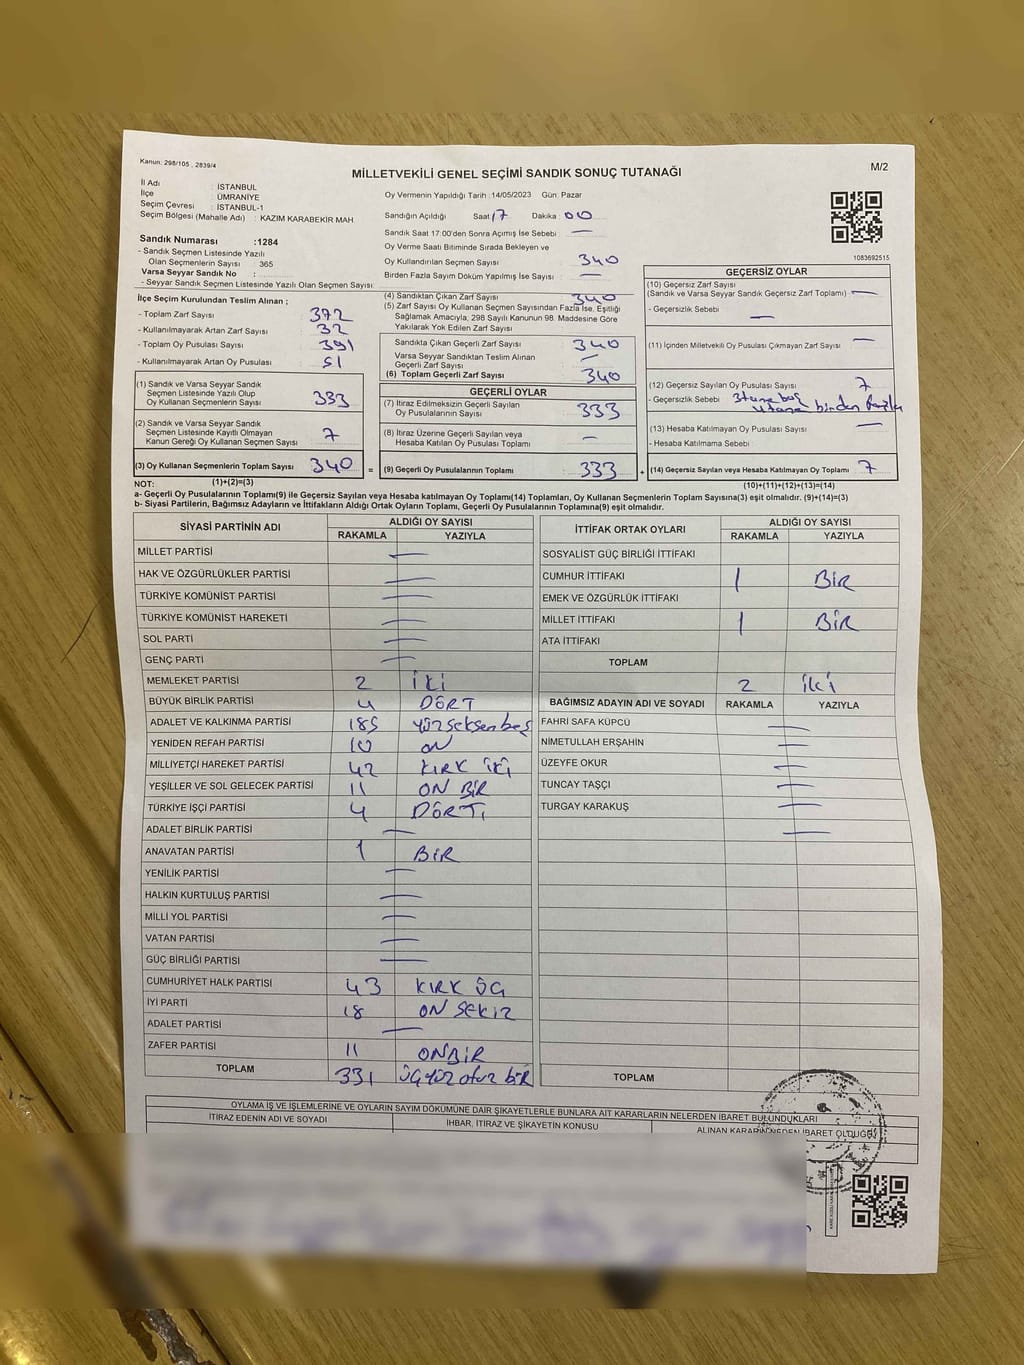 Kanun: 298/105 , 2839/4
MİLLETVEKİLİ GENEL SEÇİMİ SANDIK SONUÇ TUTANAĞI
M/2
İl Adı : İSTANBUL
İlçe : ÜMRANİYE
Seçim Çevresi : İSTANBUL-1
Seçim Bölgesi (Mahalle Adı) : KAZIM KARABEKIR MAH.
Sandık Numarası :1284
- Sandık Seçmen Listesinde Yazılı
Olan Seçmenlerin Sayısı : 365
Varsa Seyyar Sandık No :
- Seyyar Sandık Seçmen Listesinde Yazılı Olan Seçmen Sayısı:
Oy Vermenin Yapıldığı Tarih :14/05/2023 Gün: Pazar
Sandığın Açıldığı Saat 17 Dakika: 00
Sandık Saat 17:00'den Sonra Açımış İse Sebebi : —
Oy Verme Saati Bitiminde Sırada Bekleyen ve
Oy Kullandırılan Seçmen Sayısı 340
Birden Fazla Sayım Döküm Yapılmış İse Sayısı : —
1083692515
İlçe Seçim Kurulundan Teslim Alınan ;
- Toplam Zarf Sayısı 372
- Kullanılmayarak Artan Zarf Sayısı 32
- Toplam Oy Pusulası Sayısı 391
- Kullanılmayarak Artan Oy Pusulası 51
(1) Sandık ve Varsa Seyyar Sandık
Seçmen Listesinde Yazılı Olup
Oy Kullanan Seçmenlerin Sayısı 333
(2) Sandık ve Varsa Seyyar Sandık
Seçmen Listesinde Kayıtlı Olmayan
Kanun Gereği Oy Kullanan Seçmen Sayısı 7
(3) Oy Kullanan Seçmenlerin Toplam Sayısı 340 =
(1)+(2)=(3)
(4) Sandıktan Çıkan Zarf Sayısı 340
(5) Zarf Sayısı Oy Kullanan Seçmen Sayısından Fazla İse, Eşitliği
Sağlamak Amacıyla, 298 Sayılı Kanunun 98. Maddesine Göre
Yakılarak Yok Edilen Zarf Sayısı
Sandıkta Çıkan Geçerli Zarf Sayısı 340
Varsa Seyyar Sandıktan Teslim Alınan
Geçerli Zarf Sayısı —
(6) Toplam Geçerli Zarf Sayısı 340
GEÇERLİ OYLAR
(7) İtiraz Edilmeksizin Geçerli Sayılan
Oy Pusulalarının Sayısı 333
(8) İtiraz Üzerine Geçerli Sayılan veya
Hesaba Katılan Oy Pusulası Toplamı —
(9) Geçerli Oy Pusulalarının Toplamı 333 +
GEÇERSİZ OYLAR
(10) Geçersiz Zarf Sayısı
(Sandık ve Varsa Seyyar Sandık Geçersiz Zarf Toplamı) —
- Geçersizlik Sebebi —
(11) İçinden Milletvekili Oy Pusulası Çıkmayan Zarf Sayısı —
(12) Geçersiz Sayılan Oy Pusulası Sayısı 7
- Geçersizlik Sebebi 3tane boş
4tane birden fazla
(13) Hesaba Katılmayan Oy Pusulası Sayısı —
- Hesaba Katılmama Sebebi
(14) Geçersiz Sayılan veya Hesaba Katılmayan Oy Toplamı 7
(10)+(11)+(12)+(13)=(14)
NOT:
a- Geçerli Oy Pusulalarının Toplamı(9) ile Geçersiz Sayılan veya Hesaba katılmayan Oy Toplam(14) Toplamları, Oy Kullanan Seçmenlerin Toplam Sayısına(3) eşit olmalıdır. (9)+(14)=(3)
b- Siyasi Partilerin, Bağımsız Adayların ve İttifakların Aldığı Ortak Oyların Toplamı, Geçerli Oy Pusulalarının Toplamına(9) eşit olmalıdır.
SİYASİ PARTİNİN ADI ALDIĞI OY SAYISI
RAKAMLA YAZIYLA
MİLLET PARTİSİ —
HAK VE ÖZGÜRLÜKLER PARTİSİ —
TÜRKİYE KOMÜNİST PARTİSİ —
TÜRKİYE KOMÜNİST HAREKETİ —
SOL PARTİ —
GENÇ PARTİ —
MEMLEKET PARTİSİ 2 iki
BÜYÜK BİRLİK PARTİSİ 4 DÖRT
ADALET VE KALKINMA PARTİSİ 185 yüzseksenbeş
YENİDEN REFAH PARTİSİ 10 ON
MİLLİYETÇİ HAREKET PARTİSİ 42 KIRK İKİ
YEŞİLLER VE SOL GELECEK PARTİSİ 11 ON BİR
TÜRKİYE İŞÇİ PARTİSİ 4 DÖRT
ADALET BİRLİK PARTİSİ —
ANAVATAN PARTİSİ 1 BİR
YENİLİK PARTİSİ —
HALKIN KURTULUŞ PARTİSİ —
MİLLİ YOL PARTİSİ —
VATAN PARTİSİ —
GÜÇ BİRLİĞİ PARTİSİ —
CUMHURİYET HALK PARTİSİ 43 KIRK ÜÇ
İYİ PARTİ 18 ON SEKİZ
ADALET PARTİSİ —
ZAFER PARTİSİ 11 ONBİR
TOPLAM 331 üçyüz otuz bir
İTTİFAK ORTAK OYLARI ALDIĞI OY SAYISI
RAKAMLA YAZIYLA
SOSYALIST GÜÇ BİRLİĞİ İTTİFAKI
CUMHUR İTTİFAKI 1 BİR
EMEK VE ÖZGÜRLÜK İTTİFAKI
MİLLET İTTİFAKI 1 BİR
ATA İTTİFAKI
TOPLAM 2 iki
BAĞIMSIZ ADAYIN ADI VE SOYADI RAKAMLA YAZIYLA
FAHRİ SAFA KÜPCÜ —
NİMETULLAH ERŞAHİN —
ÜZEYFE OKUR —
TUNCAY TAŞÇI —
TURGAY KARAKUŞ —
—
TOPLAM
OYLAMA İŞ VE İŞLEMLERİNE VE OYLARIN SAYIM DÖKÜMÜNE DAİR ŞİKAYETLERLE BUNLARA AİT KARARLARIN NELERDEN İBARET BULUNDUKLARI
İTİRAZ EDENİN ADI VE SOYADI İHBAR, İTİRAZ VE ŞİKAYETİN KONUSU ALINAN KARARIN NEDEN İBARET OLDUĞU